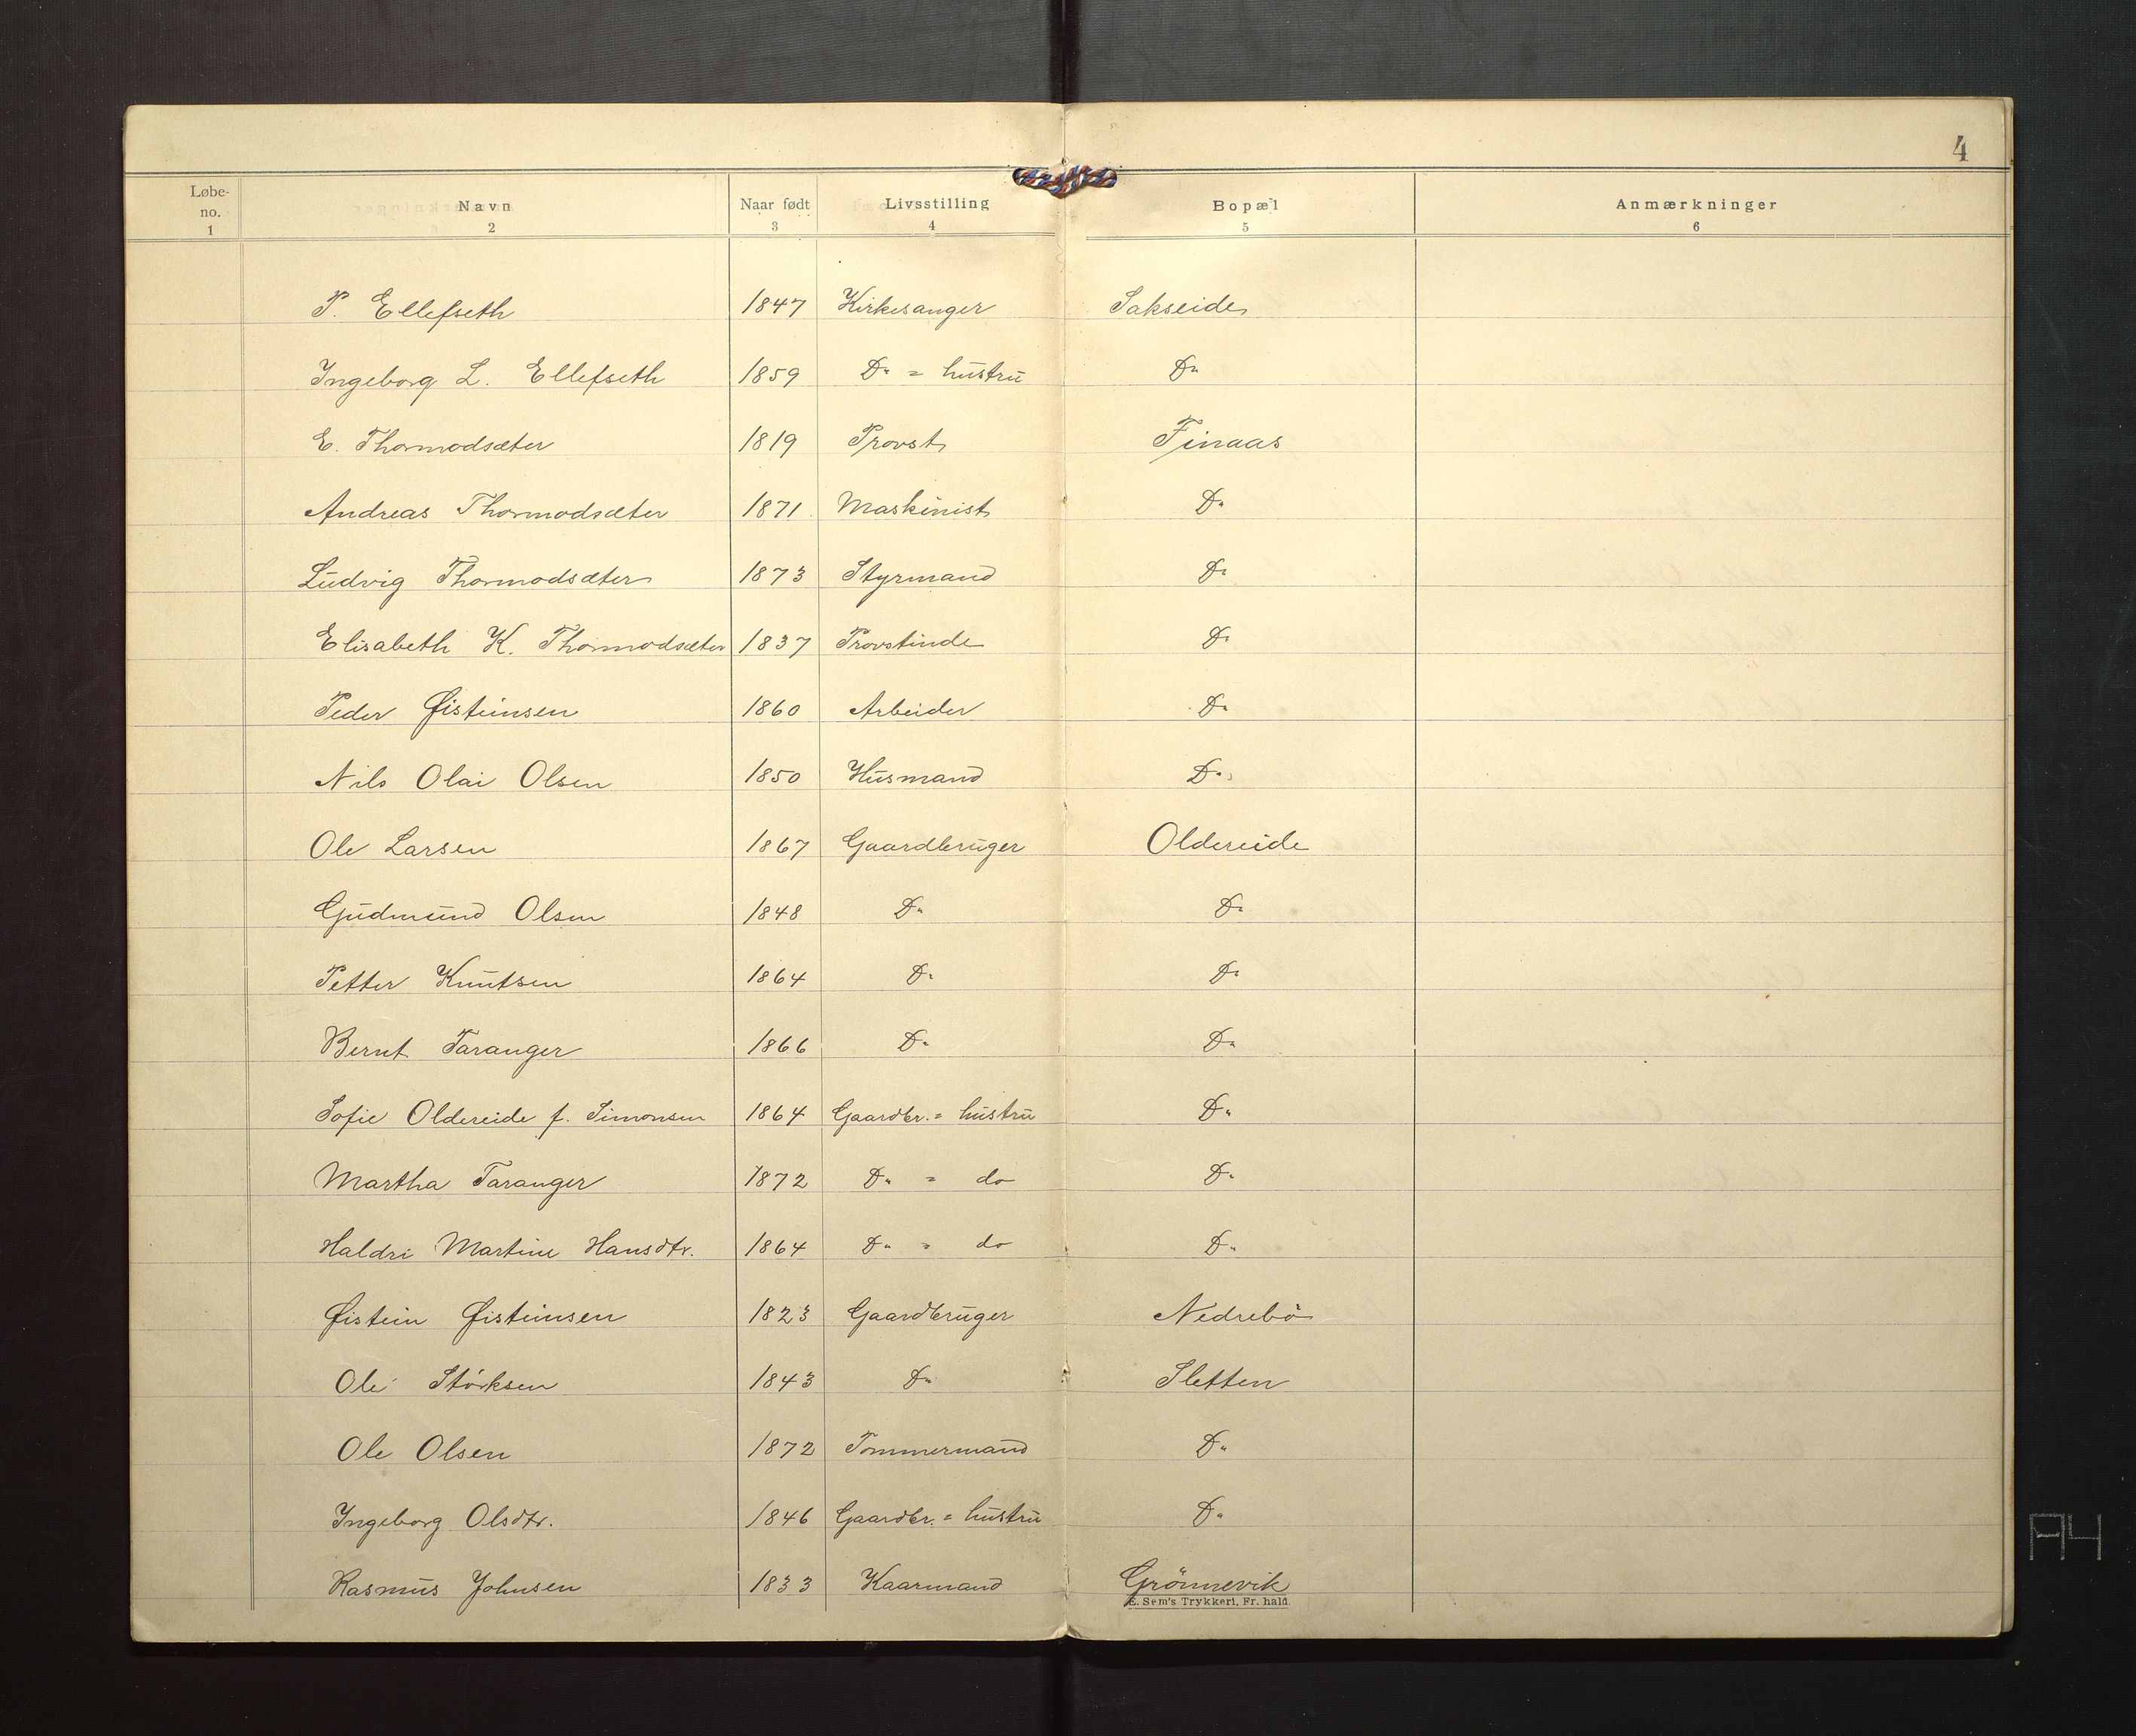 4
Løbe-no. Navn Naar født Livsstilling Bopæl Anmærkninger
1 2 3 4 5 6
P. Ellefseth 1847 Kirkesanger Sakseide
Ingeborg L. Ellefseth 1859 Do = hustru Do
E. Thormodsæter 1819 Provst Finaas
Andreas Thormodsæter 1871 Maskinist Do
Ludvig Thormodsæter 1873 Styrmand Do
Elisabeth K. Thormodsæter 1837 Provstinde Do
Peder Øisteinsen 1860 Arbeider Do
Nils Olai Olsen 1850 Husmand Do
Ole Larsen 1867 Gaardbruger Oldereide
Gudmund Olsen 1848 Do Do
Petter Knutsen 1864 Do Do
Bernt Taranger 1866 Do Do
Sofie Oldereide f. Simonsen 1864 Gaardbr. = hustru Do
Martha Taranger 1872 Do = do Do
Haldri Martine Hansdtr. 1864 Do = do Do
Øistein Øisteinsen 1823 Gaardbruger Nedrebö
Ole Störksen 1843 Do Sletten
Ole Olsen 1872 Tømmermand Do
Ingeborg Olsdtr. 1846 Gaardbr. = hustru Do
Rasmus Johnsen 1833 Kaarmand Grönnevik
E. Sem's Trykkeri, Fr. hald
A4